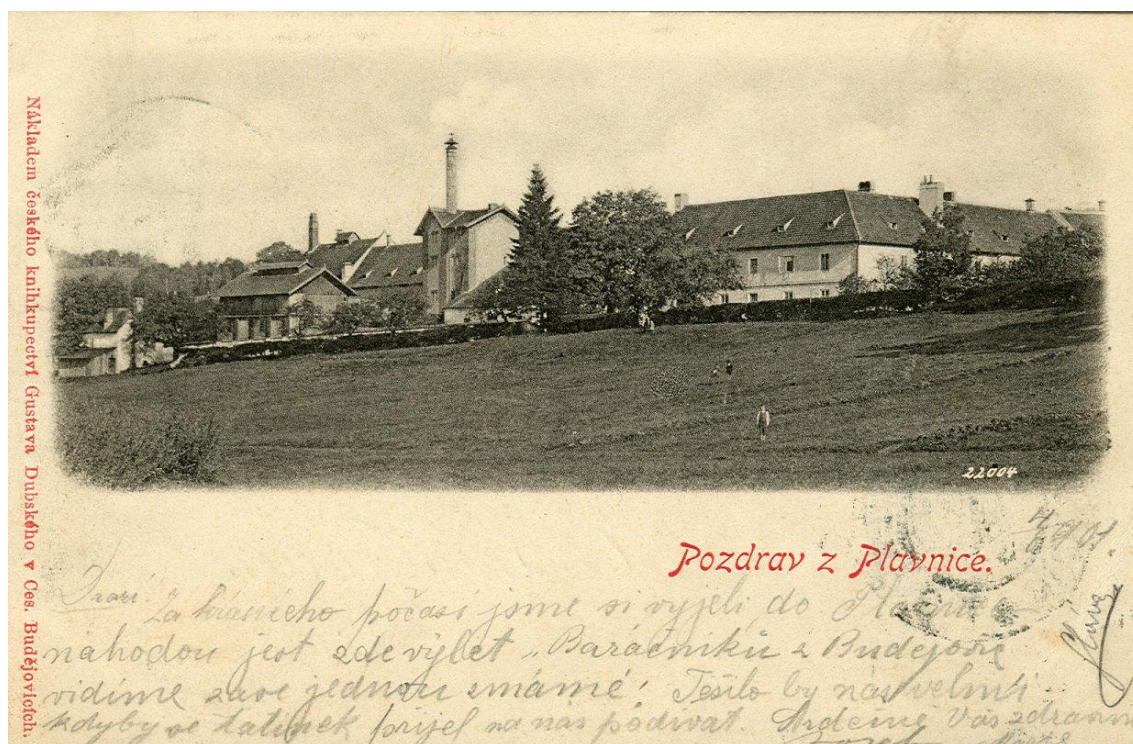 Nákladem českého knihkupectví Gustava Dubského v Čes. Budějovicích.
22004
Pozdrav z Plavnice.
Drazí!
Za krásného počasí jsme si vyjeli do
náhodou jest zde výlet „Baráčníků z Budějovic
vidíme zase jednou známé! Těšilo by nás velmi
kdyby se tatínek přijel na nás podívat. Srdečně Vás zdraví